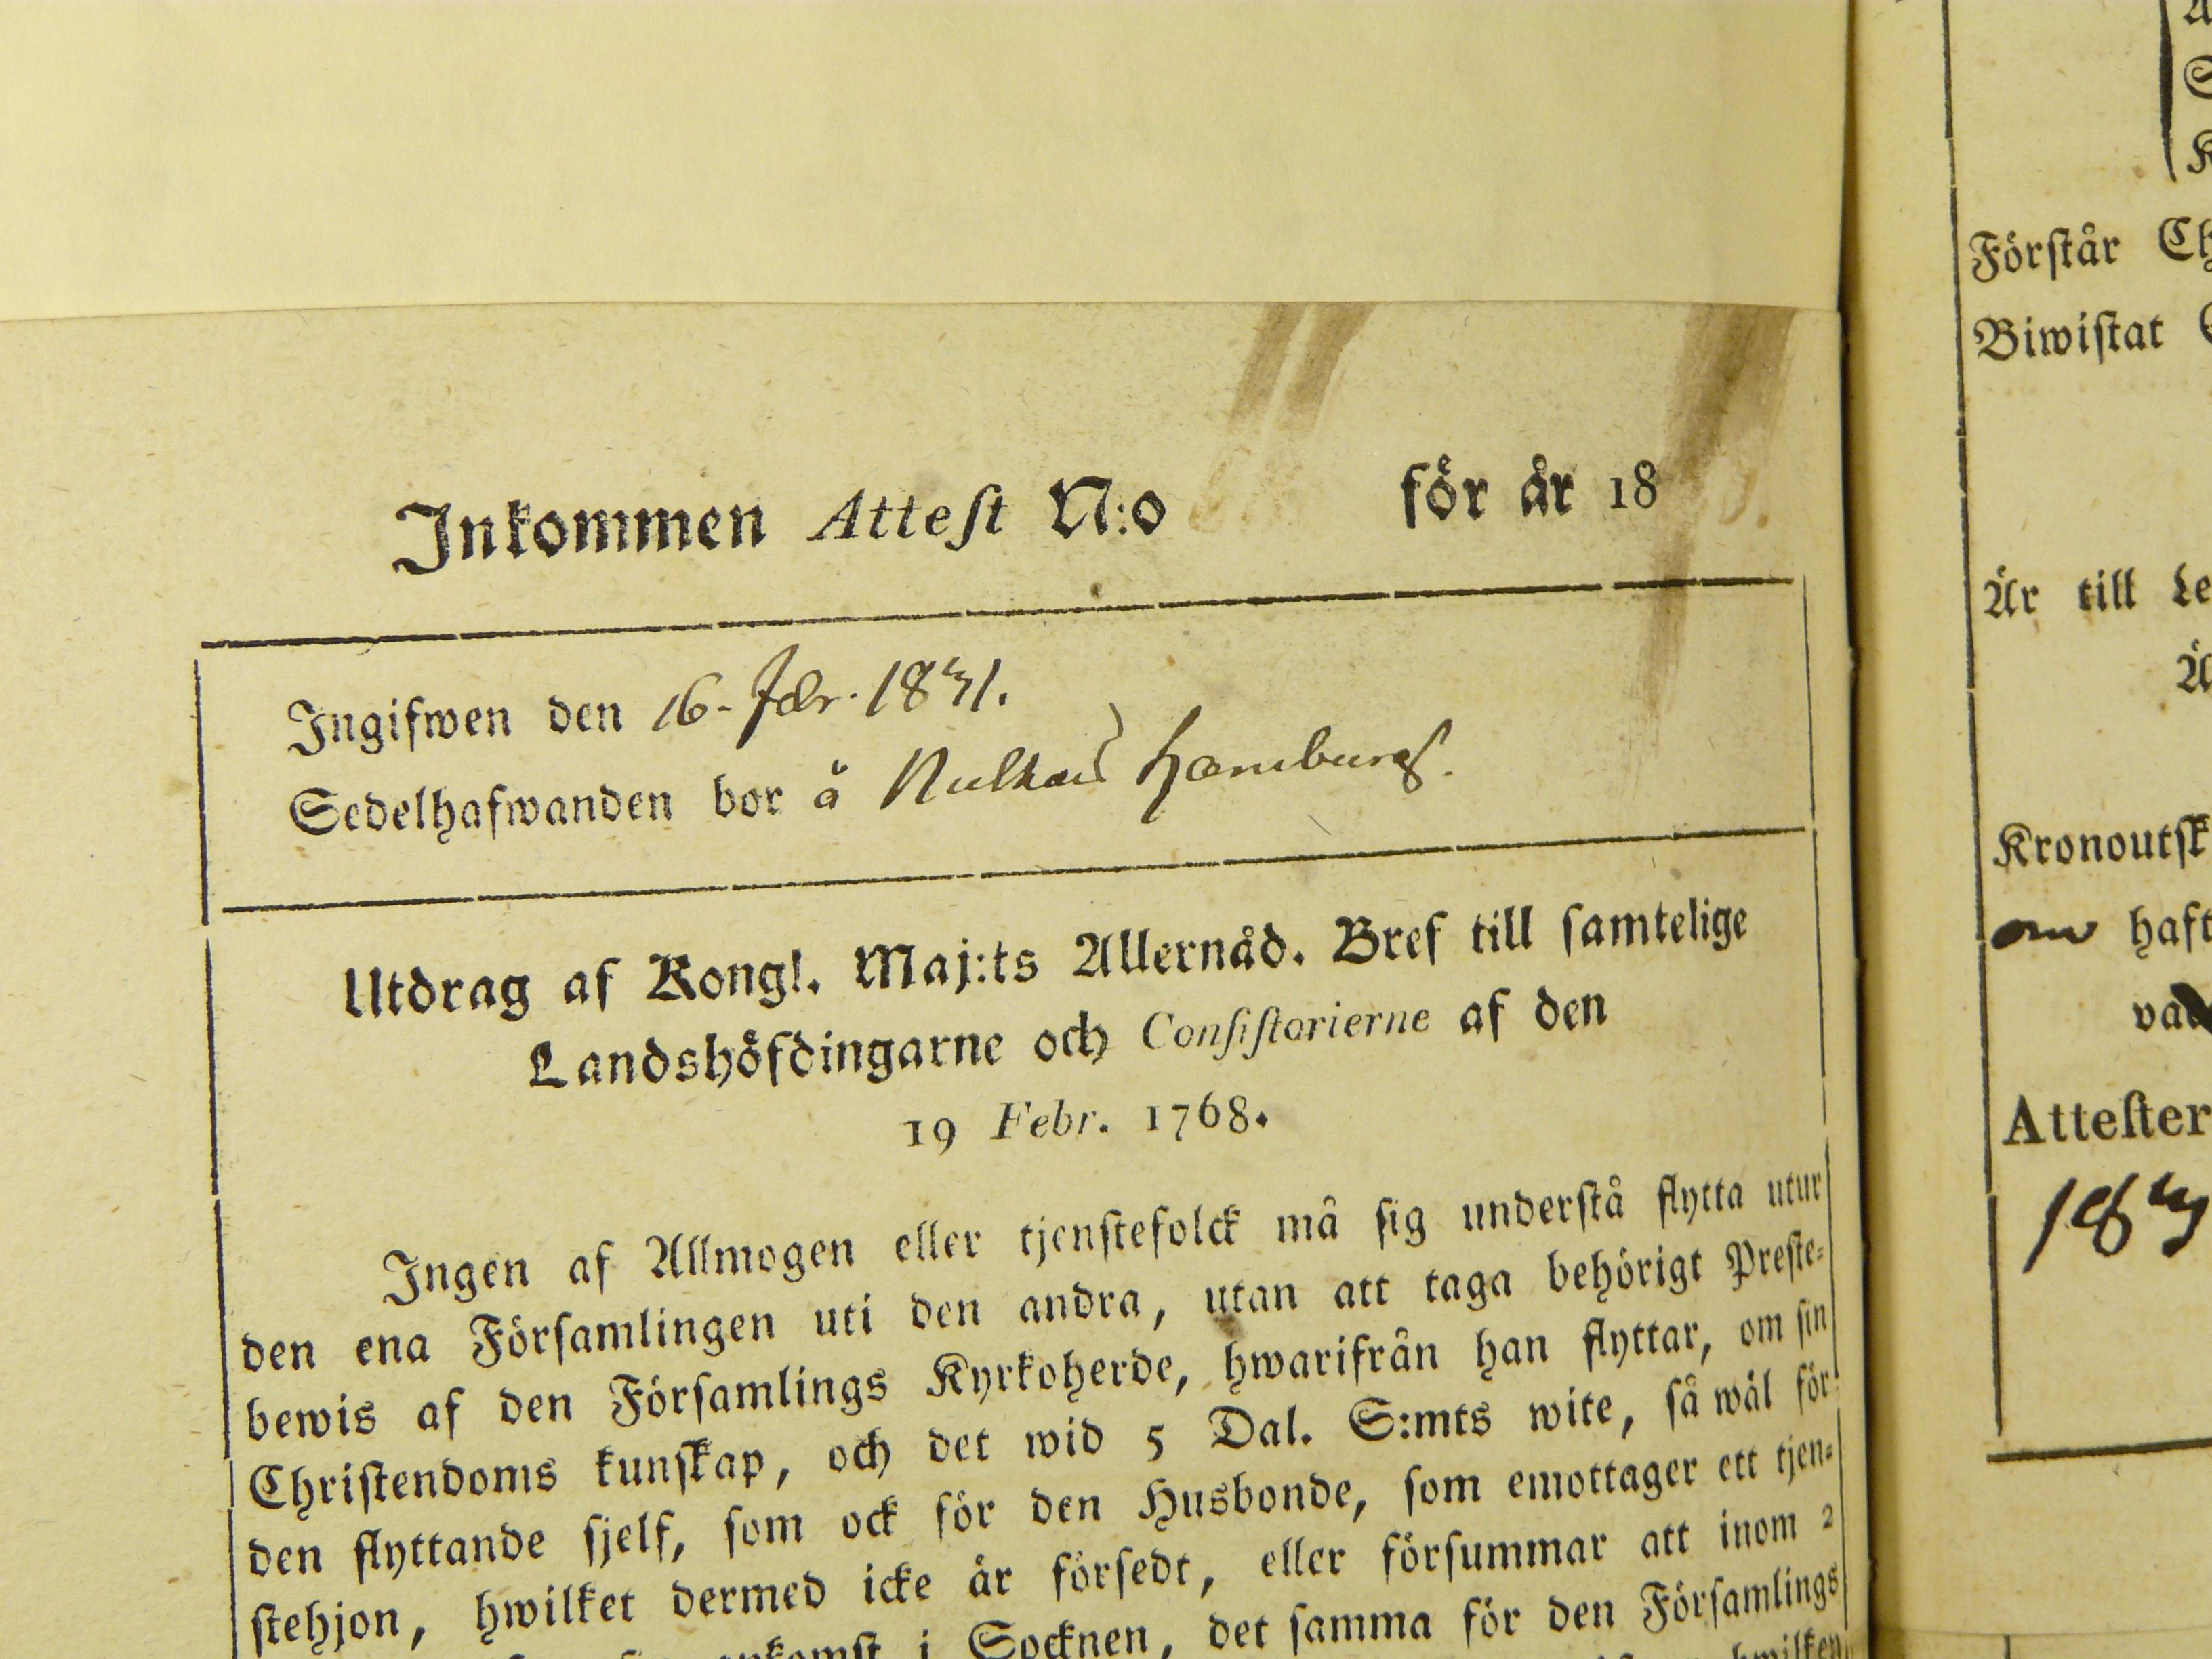 Inkommen Attest N:o för år 18
Ingifwen den 16- Febr. 1831.
Sedelhafwanden bor å Hamburg.
Utdrag af Kongl. Maj:ts Allernåd. Bref till samtelige
Landshöfdingarne och Consistorierne af den
19 Febr. 1768.
Ingen af Allmogen eller tjenstefolck må sig understå flytta utur
den ena Församlingen uti den andra, utan att taga behörigt Preste-
bewis af den Församlings Kyrkoherde, hwarifrån han flyttar, om sin
Christendoms kunskap, och det wid 5 Dal. S:mts wite, så wäl för
den flyttande sjelf, som ock för den Husbonde, som emottager ett tjen-
stehjon, hwilket dermed icke är försedt, eller försummar att inom 2
ankomst i Socknen, det samma för den Församlings
hwilken
Förstår
Biwistat
Är till
Kronoutsk
om haft
Attester
183